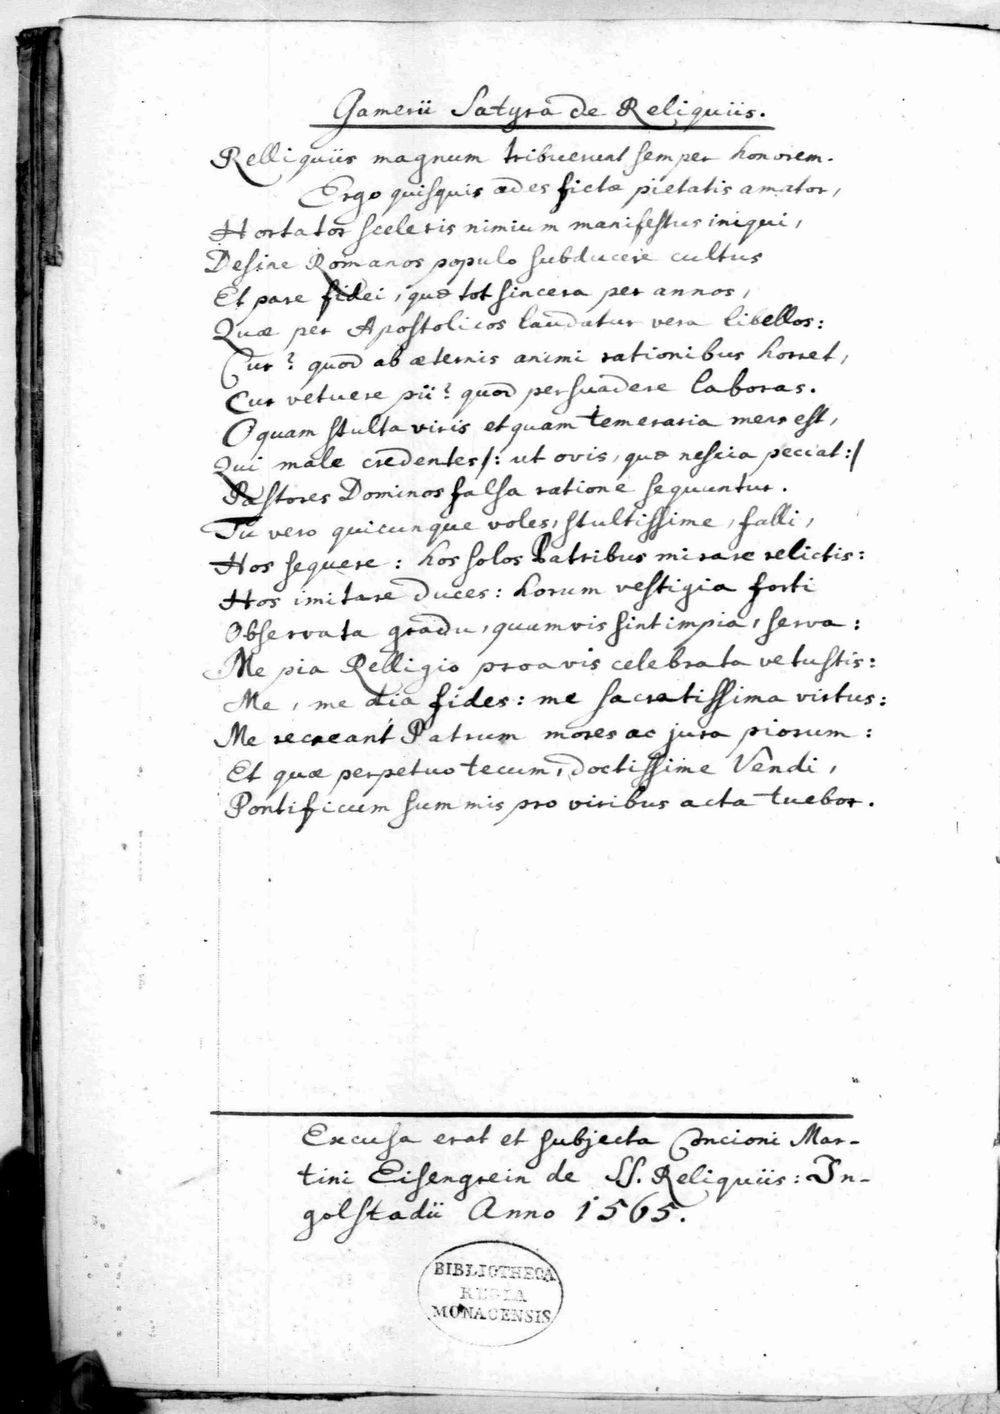 Gamerii Satyra de Reliquiis.
Relliquiis magnum tribuerunt semper honorem.
Ergo quisquis ades fictæ pietatis amator,
Hortator sceleris nimium manifestus iniqui,
Desine Romanos populo subducere cultus
Et pare fidei, quæ tot sincera per annos,
Quæ per Apostolicos laudatur vera libellos:
Cur? quod ab æternis animi rationibus horret,
Cur vetuere pii? quod persuadere laboras.
O quam stulta viris et quam temeraria mens est,
Qui male credentes /: ut ovis, quæ nescia peccat :/
Pastores Dominos falsa ratione sequuntur.
Tu vero quicunque voles, stultissime, falli,
Hos sequere: hos solos Patribus mirare relictis:
Hos imitare duces: horum vestigia forti
Observata gradu, quamvis sint impia, serva:
Me pia Relligio proavis celebrata vetustis:
Me, me dia fides: me sacratissima virtus:
Me recreant Patrum mores ac jura piorum:
Et quæ perpetuo tecum, doctissime Vendi,
Pontificum summis pro viribus acta tuebor.
Excusa erat et subjecta Concioni Mar-
tini Eisengrein de SS. Reliquiis: In-
golstadii Anno 1565.
BIBLIOTHECA
REGIA
MONACENSIS